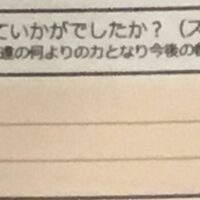 ていかがでしたか？（ス
達の何よりの力となり今後の